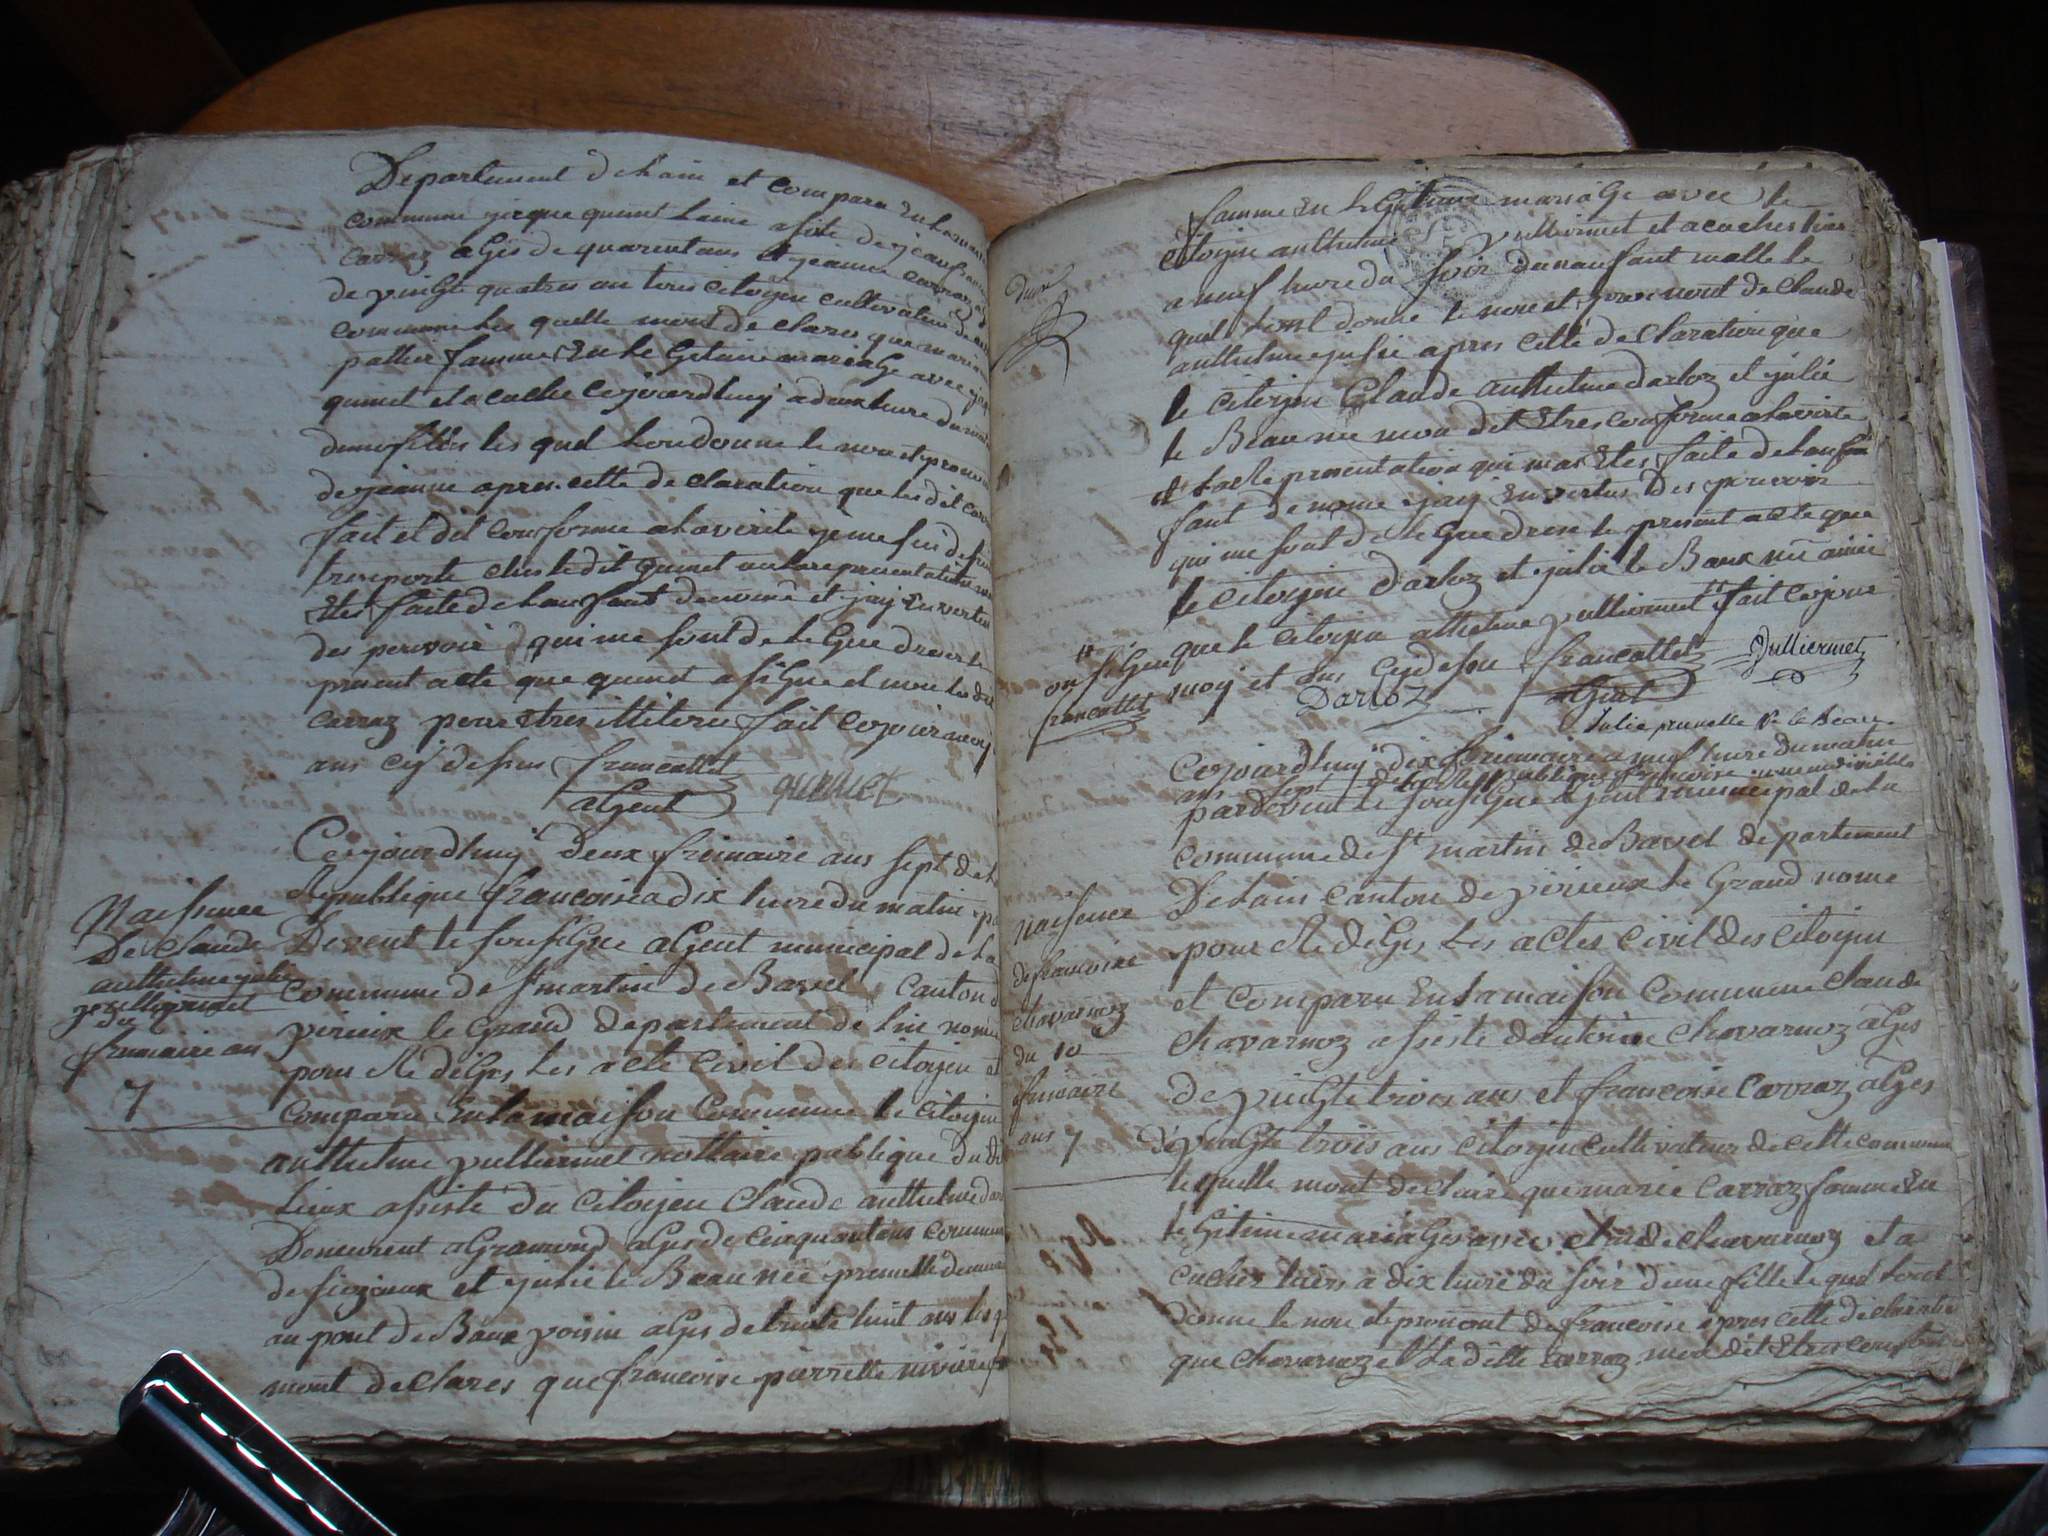 Departement de Lain et comparu en la
commune jacque quinet laine asisté de
carraz agés de quarentans et jeanne carraz
de vingte quatres an tous citoyen cultivateur de
commune les quelle mont declares que marie
pattier famme en le Gitime mariage avec
quinet et acuchée cejourdhuy a deux heure du
dune filles les quel lon donne le nom et prenom
de jeanne apres cette declaration que les dit
fait et dit conforme a la verite je me sui de suite
transporte ches le dit quinet ou la representation
Etes faite de lanfant denome et jay en vertu
des pouvoir qui me sont de le Gue dresse le
present acte que quinet a siGne et non les dit
carraz pour Etres illitere fait cejour
ans cy desus francallet
aGent quinet
Cejourdhuy deux frimaire ans sept de la
Republique francoise a dix heure du matin
Devent le sousiGne aGent municipal de la
commune de st martin de Bavel canton
virieux le Grand departement de lin nome
pour Redi Ges les acte civil des citoyen et
comparu en la maison commune le citoyen
anthelme vulliermet nottaire publique du dit
lieux asisté du citoyen Claude anthelme
Demeurent a Gramond agés de cinquentans commune
de siezieux et julie le Beau née prunelle
au pont de Baux voisin aGes de trente huit ans les
mont declares que francoise pierrette riviere
Naissence
De claude
anthelme julie
frimaire an
7
famme en le Gitime mariage avec le
citoyen anthelme vulliermet et acuches hier
a neuf heure du soir dun anfant malle le
quel lont donne le nom et prenomt de Claude
anthelme julie apres cette declaration que
le citoyen Claude anthelme darloz et julie
le Beau née mon dit Etres conforme a la verite
et la Representation qui mas Etes faite de lanfan
fant denome jay en vertus des pouvoir
qui me sont de le Gue dresse le present acte que
le citoyen darloz et julie le Baux née
que le citoyen athelme vulliermet fait cejour
on siGne
francallet
moy et ans cy desu francallet Vulliermet
Darloz aGent
Julie prunelle Ve le Beau
Cejourdhuy dix frimaire a neuf heure du matin
ans sept de la Republique francoise une indivisible
pardevent le sousiGne aGent municipal de la
commune de st martin de Bavel departement
De Lain canton de virieux le Grand nome
pour Redi Ges les actes civil des citoyen
et comparu en la maison commune claude
chavarnoz asiste dantoine chavarnoz aGes
de vingte trois ans et francoise carraz aGes
de vingte trois ans citoyen cultivateur de cette commune
lesquelle mont declaire que marie carraz famme en
le Gitime mariaGes avec claude chavarnoz et a
cuches hiers a dix heure du soir dune fille le quel lont
donne le nom et prenomt de francoise apres cette declaration
que chavarnoz et la ditte carraz mon dit Etres conforme
Naisence
de francoise
chavarnoz
du 10
frimaire
ans 7